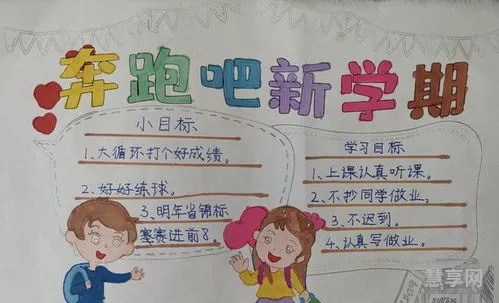 奔跑吧新学期
小目标
1、大循环打个好成绩。
2、好好练球。
3、明年省锦标
赛赛进前8。
学习目标
1、上课认真听课。
2、不抄同学做业。
3、不迟到。
4、认真写做业。
慧享网